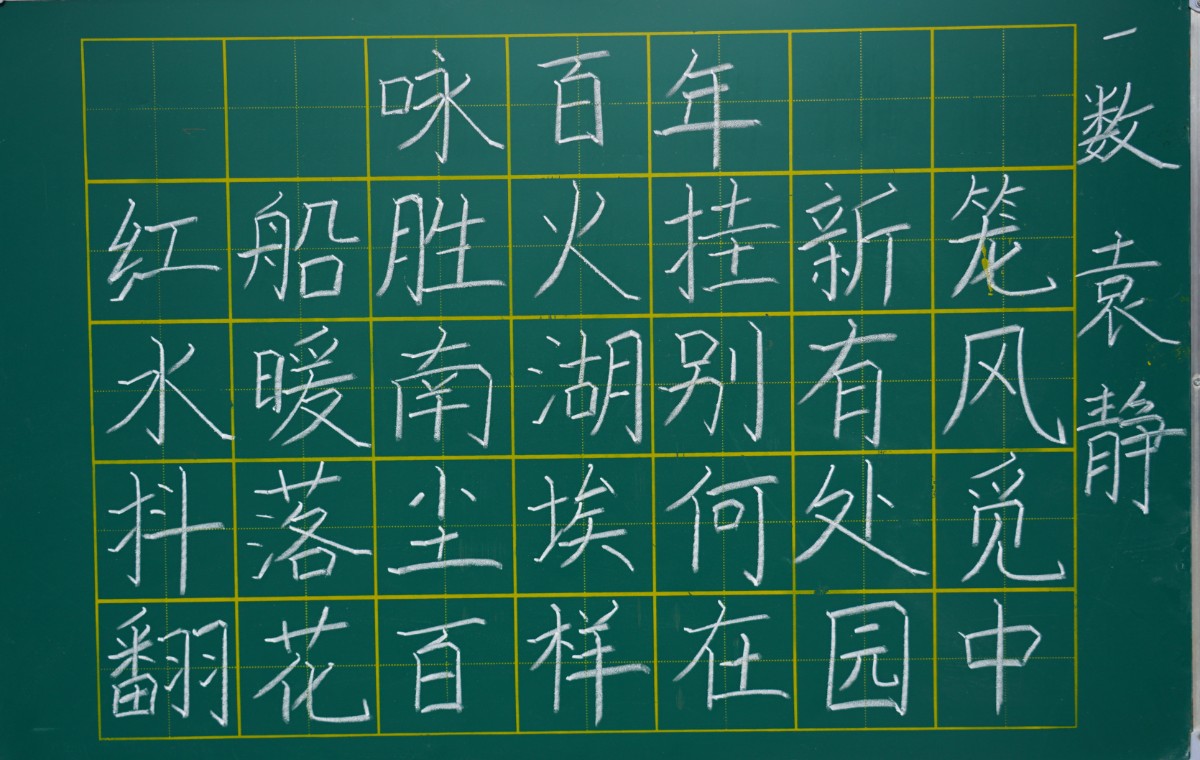 咏百年
红船胜火挂新笼
水暖南湖别有风
抖落尘埃何处觅
翻花百样在园中
一数 袁静